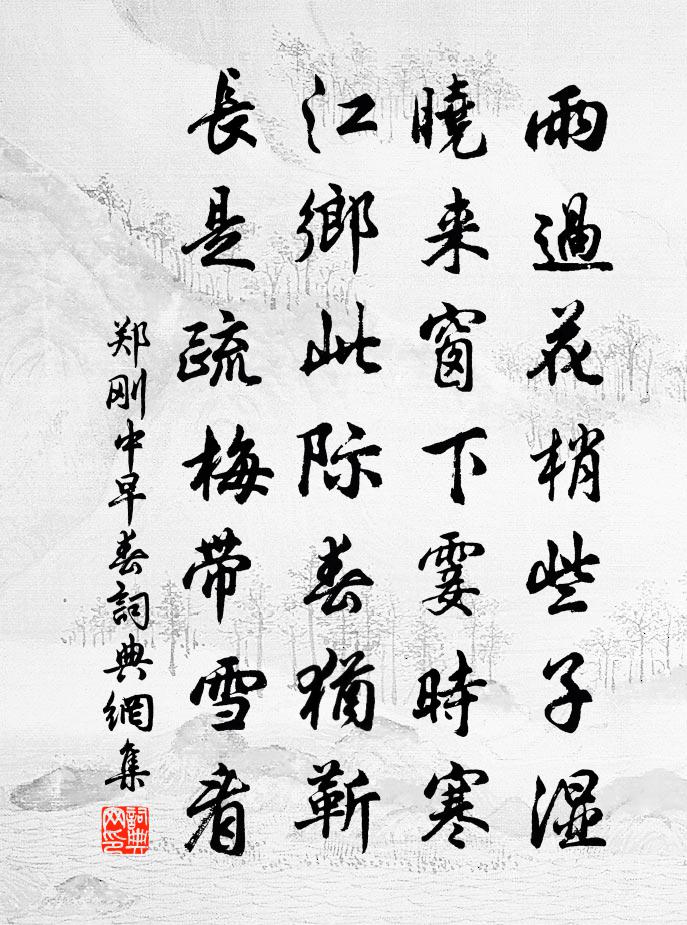 雨過花梢些子湿
曉来窗下霎時寒
江鄉此际春猶靳
長是疏梅带雪看
郑刚中早春詞典網集
詞典網印